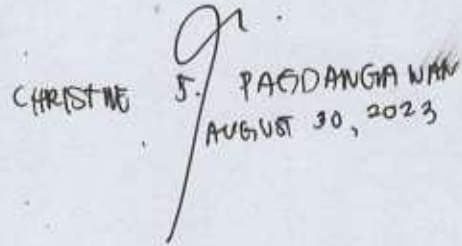 CHRISTINE J. PAGDANGANAN
AUGUST 30, 2023